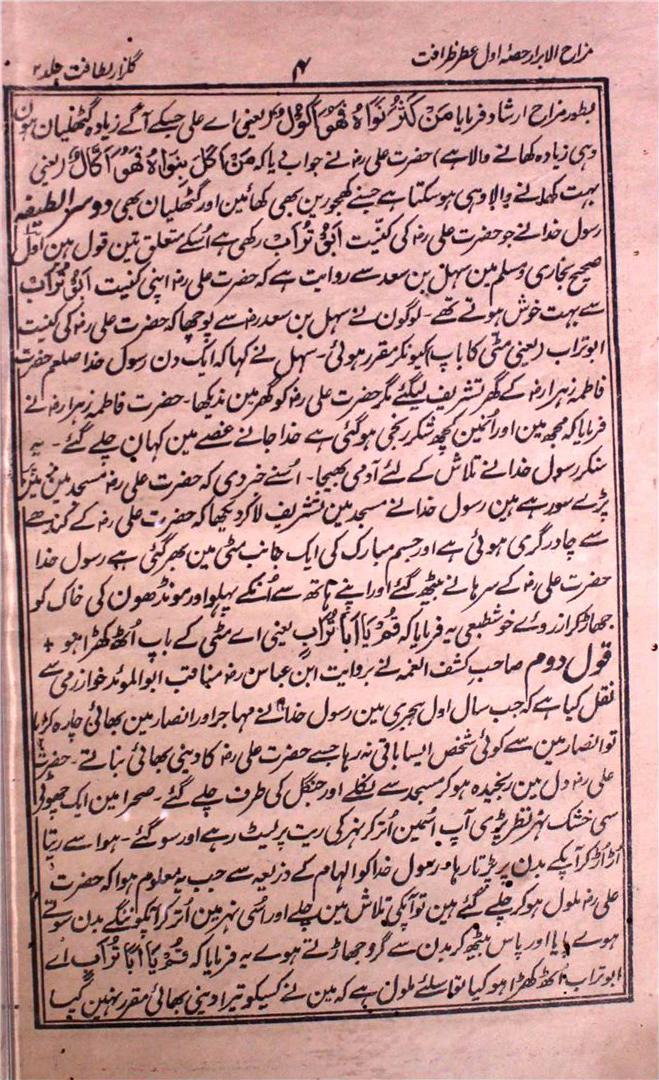 مزاح الابرار حصۂ اول عطر ظرافت
۴
گلزار لطافت جلد ۲
بطور مزاح ارشاد فرمایا مَنْ کَثُرَ نَوَاہُ فَھُوَ اَکُوْلٌ (یعنی اے علی جسکے آگے زیادہ گٹھلیان ہون
وہی زیادہ کھانے والا ہے) حضرت علی رضہ نے جواب دیا کہ مَنْ اَکَلَ بِنَوَاہُ فَھُوَ اَکَّالٌ (یعنی
بہت کھانے والا وہی ہوسکتا ہے جسنے کھجورین بھی کھائین اور گٹھلیان بھی دوسرا لطیفہ
رسول خدا نے جو حضرت علی رضہ کی کنیّت اَبُوْ تُرَابْ رکھی ہے اُسکے متعلق تین قول ہین اول
صحیح بخاری و مسلم مین سہل بن سعد سے روایت ہے کہ حضرت علی رضہ اپنی کنیت اَبُوْ تُرَابْ
سے بہت خوش ہوتے تھے۔ لوگون نے سہل بن سعد رضہ سے پوچھا کہ حضرت علی رضہ کی کنیت
ابوتراب (یعنی مٹی کا باپ) کیونکر مقرر ہوئی۔ سہل نے کہا کہ ایک دن رسول خدا صلعم حضرت
فاطمہ زہرا رضہ کے گھر تشریف لیگئے مگر حضرت علی رضہ کو گھر مین نہ دیکھا۔ حضرت فاطمہ زہرا رضہ نے
فرمایا کہ مجھ مین اور اُنمین کچھ شکر رنجی ہوگئی ہے خدا جانے غصے مین کہان چلے گئے۔ یہ
سنکر رسول خدا نے تلاش کے لئے آدمی بھیجا۔ اُسنے خبر دی کہ حضرت علی رضہ مسجد مین
پڑے سو رہے ہین رسول خدا نے مسجد مین تشریف لاکر دیکھا کہ حضرت علی رضہ کے کندھے
سے چادر گری ہوئی ہے اور جسم مبارک کی ایک جانب مٹی مین بھر گئی ہے رسول خدا
حضرت علی رضہ کے سرہانے بیٹھ گئے اور اپنے ہاتھ سے اُنکے پہلو اور مونڈھون کی خاک کو
جھاڑ کر از روے خوشطبعی یہ فرمایا کہ قُمْ یَا اَبَا تُرَابْ یعنی اے مٹی کے باپ اُٹھ کھڑا ہو +
قول دوم صاحب کشف الغمہ نے بروایت ابن عباس رضہ مناقب ابو الموئد خوارزمی سے
نقل کیا ہے کہ جب سال اول ہجری مین رسول خدا نے مہاجر اور انصار مین بھائی چارہ کرایا
تو انصار مین سے کوئی شخص ایسا باقی نہ رہا جسے حضرت علی رضہ کا دینی بھائی بناتے۔ حضرت
علی رضہ دل مین رنجیدہ ہوکر مسجد سے نکلے اور جنگل کی طرف چلے گئے۔ صحرا مین ایک چھوٹی
سی خشک نہر نظر پڑی آپ اُسمین اُتر کر نہر کی ریت پر لیٹ رہے اور سو گئے۔ ہوا سے ریتا
اُڑ اُڑ کر آپکے بدن پر پڑتا رہا رسول خدا کو الہام کے ذریعہ سے جب یہ معلوم ہوا کہ حضرت
علی رضہ ملول ہوکر چلے گئے ہین تو آپکی تلاش مین چلے اور اُسی نہر مین اُتر کر آپکو ننگے بدن سوتے
ہوے پایا اور پاس بیٹھ کر بدن سے گرد جھاڑتے ہوے یہ فرمایا کہ قُمْ یَا اَبَا تُرَابْ اے
ابوتراب اُٹھ کھڑا ہو کیا تو اسلئے ملول ہے کہ مین نے کسیکو تیرا دینی بھائی مقرر نہین کیا